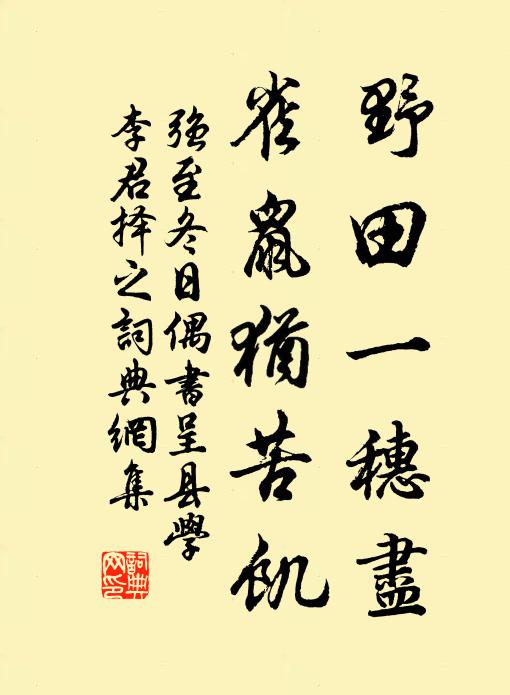 野田一穗盡
雀鼠猶苦飢
强至冬日偶書呈县學
李君择之詞典網集
詞典
网印